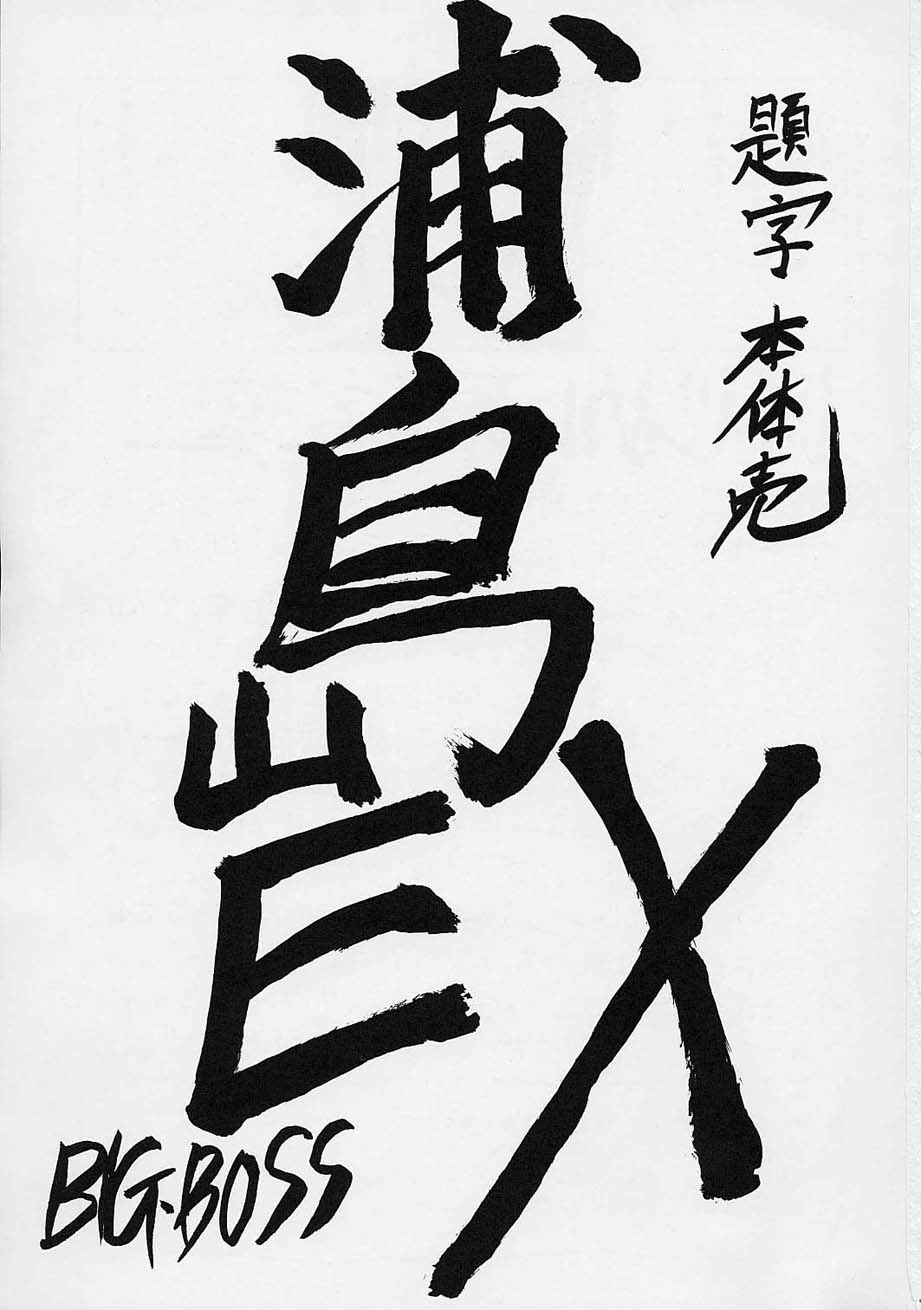 題字 本体売
浦島
EX
BIG・BOSS